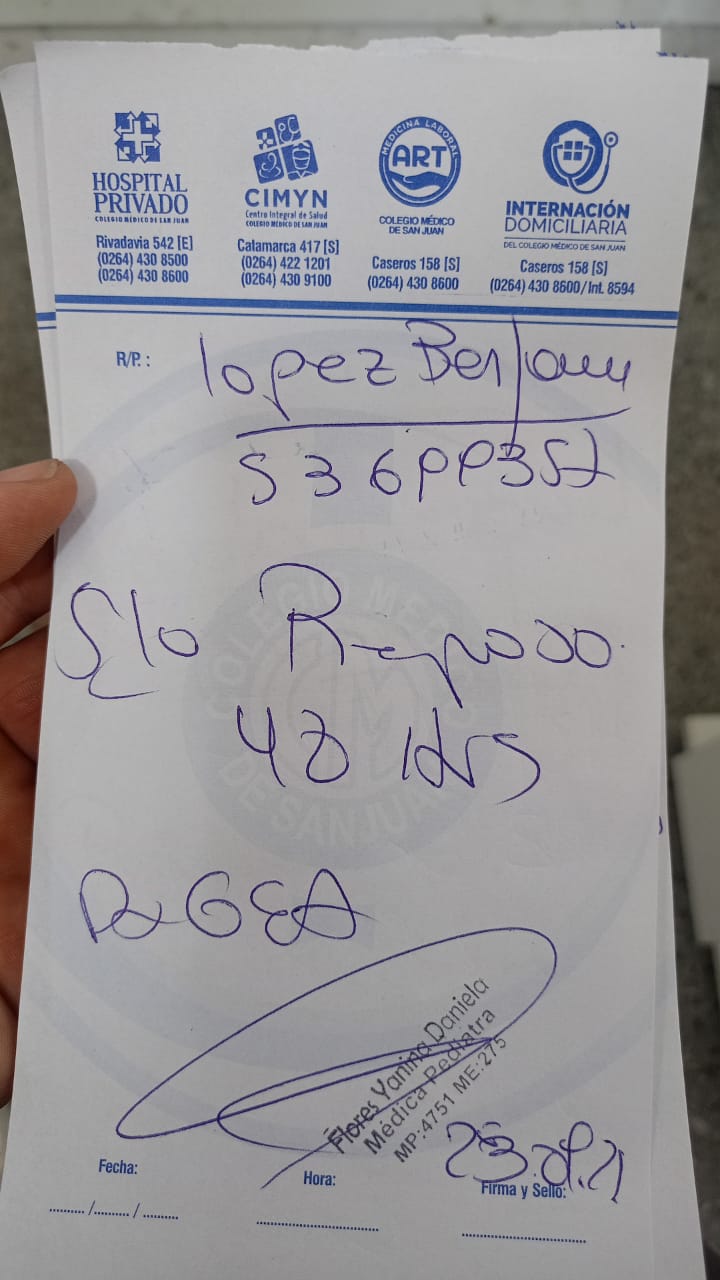 HOSPITAL
PRIVADO
COLEGIO MÉDICO DE SAN JUAN
Rivadavia 542 [E]
(0264) 430 8500
(0264) 430 8600
CIMYN
Centro Integral de Salud
COLEGIO MÉDICO DE SAN JUAN
Catamarca 417 [S]
(0264) 422 1201
(0264) 430 9100
MEDICINA LABORAL
ART
COLEGIO MÉDICO
DE SAN JUAN
Caseros 158 [S]
(0264) 430 8600
INTERNACIÓN
DOMICILIARIA
DEL COLEGIO MÉDICO DE SAN JUAN
Caseros 158 [S]
(0264) 430 8600/Int. 8594
R/P.: lopez
S/o Reposo
48 Hrs
GEA
COLEGIO MÉDICO
DE SAN JUAN
Flores Yanina Daniela
Médica Pediatra
MP:4751 ME:275
Fecha:
Hora:
Firma y Sello: